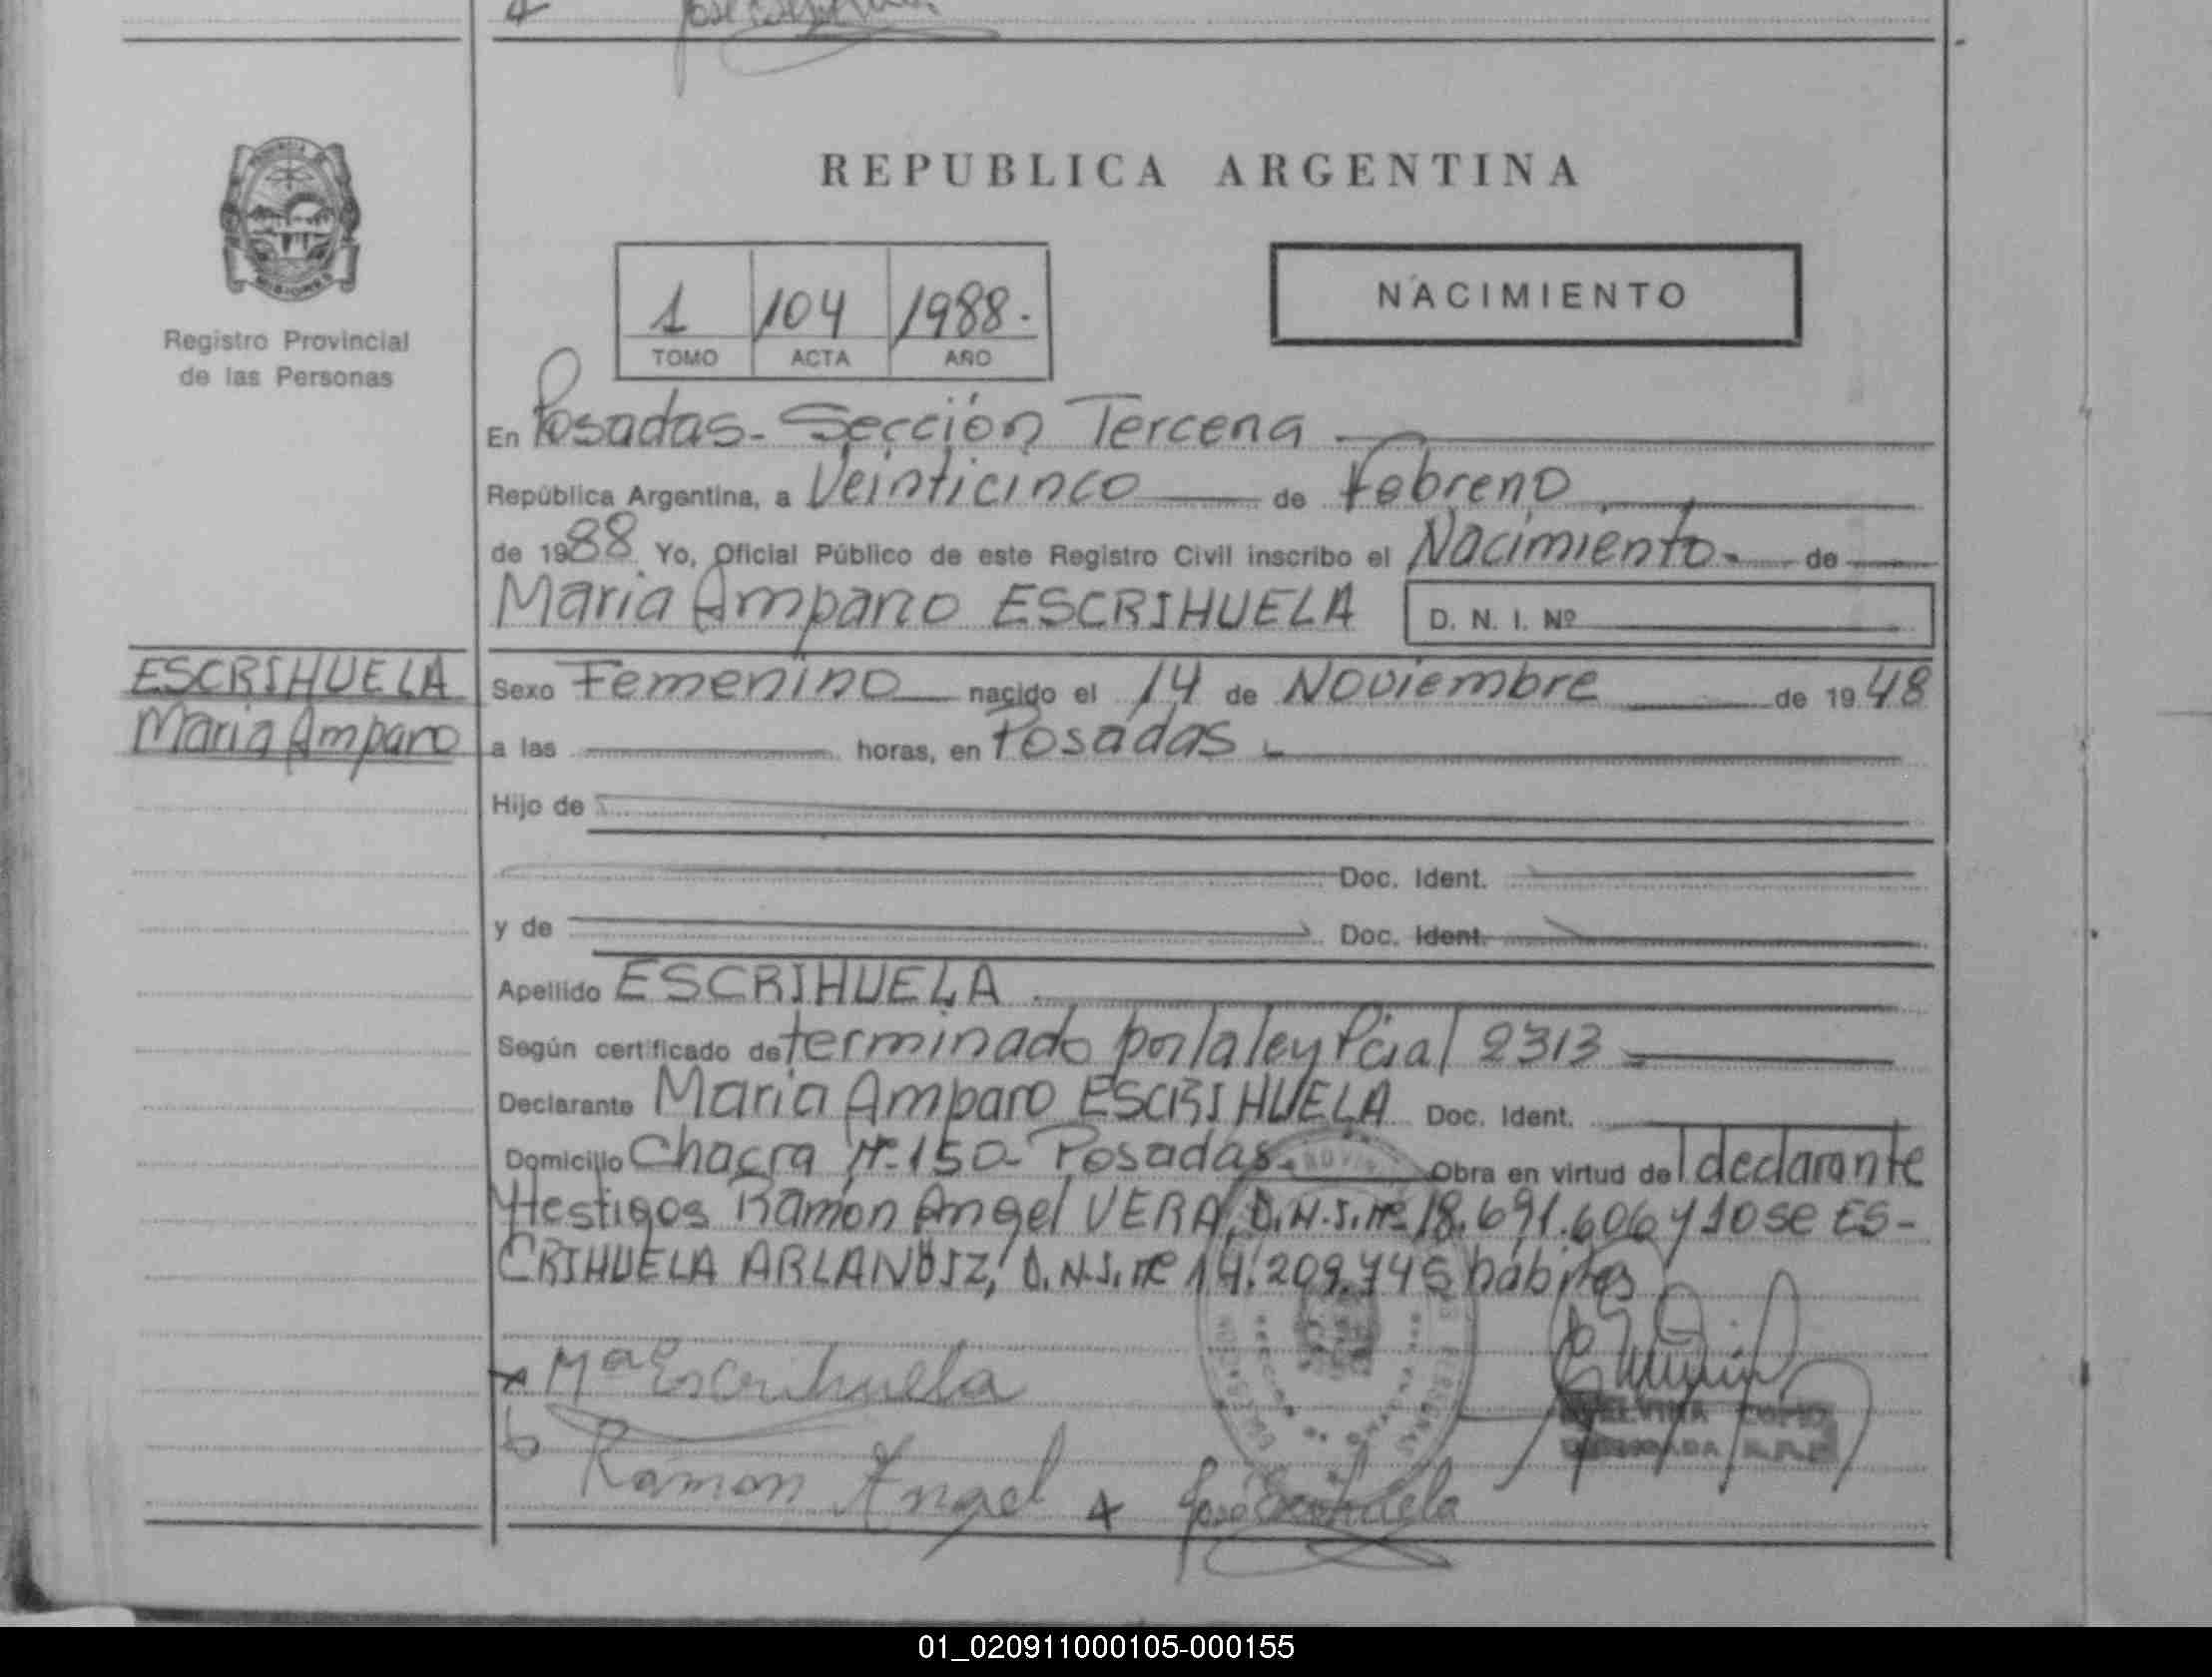 REPUBLICA ARGENTINA
Registro Provincial
de las Personas
1 104 1988.
TOMO ACTA AÑO
NACIMIENTO
En Posadas - Sección Tercera
República Argentina, a Veinticinco de Febrero
de 1988 Yo, Oficial Público de este Registro Civil inscribo el Nacimiento - de
Maria Amparo ESCRIHUELA D. N. I. Nº
ESCRIHUELA
Maria Amparo
Sexo Femenino nacido el 14 de Noviembre de 1948
a las horas, en Posadas
Hijo de
Doc. Ident.
y de Doc. Ident.
Apellido ESCRIHUELA
Según certificado determinado por la ley Pcial 2313
Declarante Maria Amparo ESCRIHUELA Doc. Ident.
Domicilio Chacra Nº 150 - Posadas - Obra en virtud del declarante
y testigos Ramón Angel VERA, D.N.I. Nº 18.691.606 y Jose ES-
CRIHUELA ARLANDIZ, D.N.I. Nº 14.209.745 hábiles
Mª Escrihuela
Ramon Angel
Jose Escrihuela
01_020911000105-000155